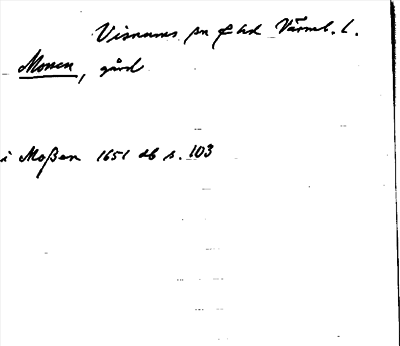 Visnums sn & hd Värml. l.
Monen, gård
i Moßen 1651 db s. 103